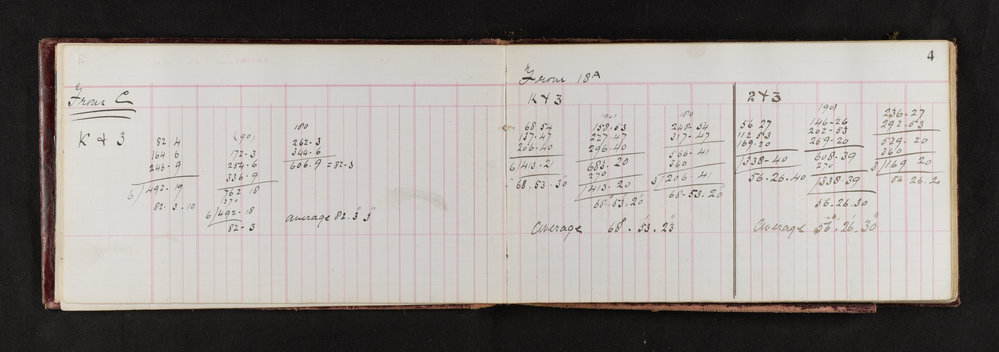 4
From C
K & 3
82 4
164 6
246 - 9
6/492 - 19
82 . 3 . 10
(90)
172 - 3
254 - 6
336 . 9
762 18
270
6/492 - 18
82 - 3
180
262 - 3
344 - 6
606 . 9 = 82 - 3
average 82° 3' 3"
From 18A
K & 3
68.54
137-47
206-40
6/413-21
68.53.30"
(90)
158.53
227.47
296.40
683.20
270
413.20
68-53.20
180
248-54
317-47
566-41
360
3/206-41
68-53.20
Average 68° . 53' . 23"
2 & 3
56-27
112.53
169.20
338-40
56.26.40
(90)
146-26
202-53
259-20
608.39
270
338 39
56.26.30
236-27
292-53
529.20
360
3/169 20
56 26.20
Average 56° 26' 30"